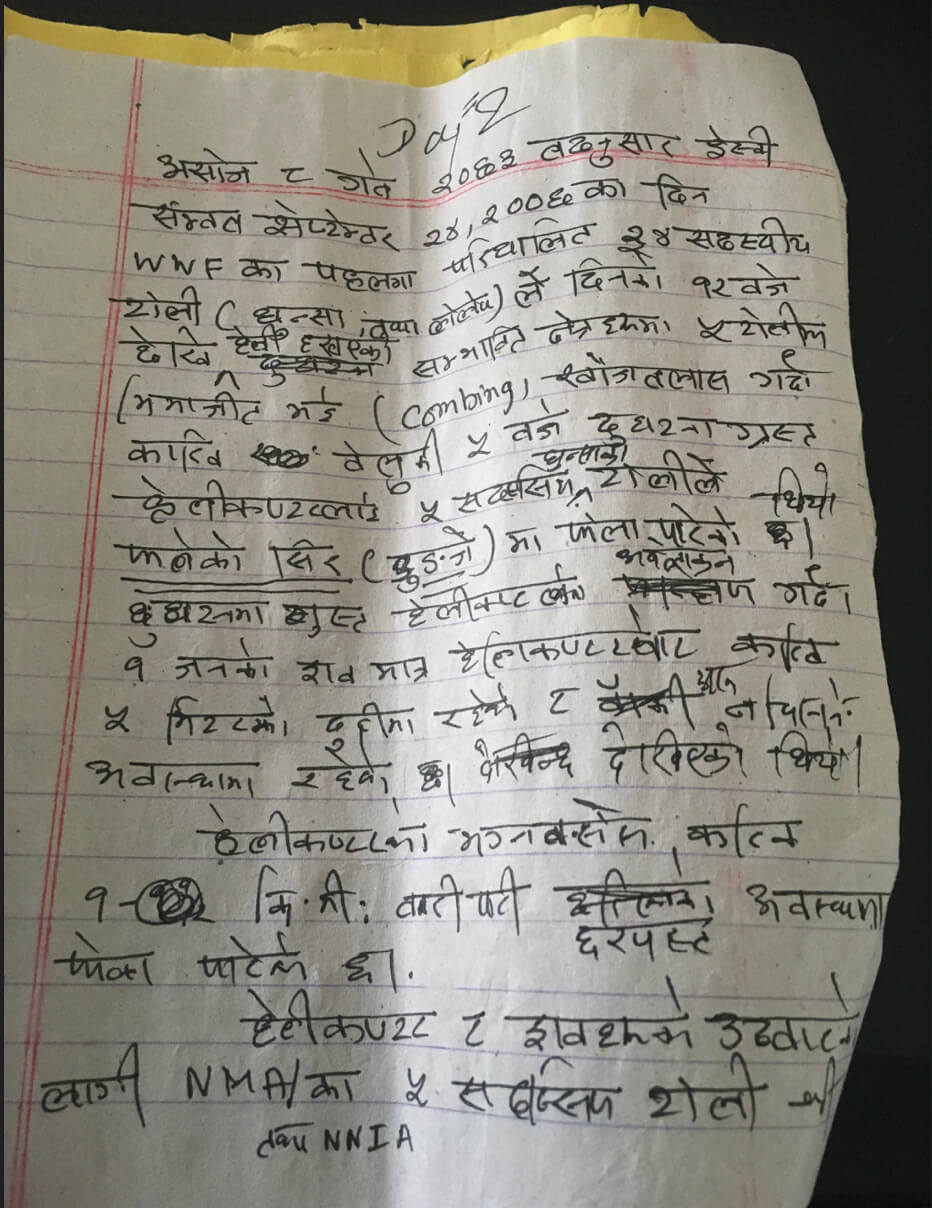 Day 2
असोज ८ गते २०६३ तदनुसार इस्वी
सम्वत सेप्टेम्बर २४, २००६ का दिन
WWF का पहलमा परिचालित २४ सदस्यीय
टोली (घुन्सा तथा लेलेप) ले दिनको १२ बजे
देखि हेली हराएको सम्भावित क्षेत्रहरुमा ५ टोलीमा
(कम्वीङ) (Combing) खोजतलास गर्दा
करिव बेलुकी ५ बजे दुर्घटना ग्रस्त
हेलीकप्टरलाई ५ सदस्यिय घुन्साको टोलीले
फलेको सिर (डुङ्गे) मा फेला पारेको थियो।
दुर्घटना ग्रस्त हेलीकप्टर अवलोकन गर्दा
१ जनको शव मात्र हेलिकप्टरबाट करिव
५ मिटरको दुरीमा रहेको र अरु नचिनिने
अवस्थामा रहेको देखिएको थियो।
हेलीकप्टरको भग्नावशेष करिव
१- कि.मी. वरीपरी छरपस्ट अवस्थामा
फेला पारेको छ।
हेलीकप्टर र शवहरुको उद्दारको
लागी NMA का ५ सदस्यिय टोली
तथा NNIA